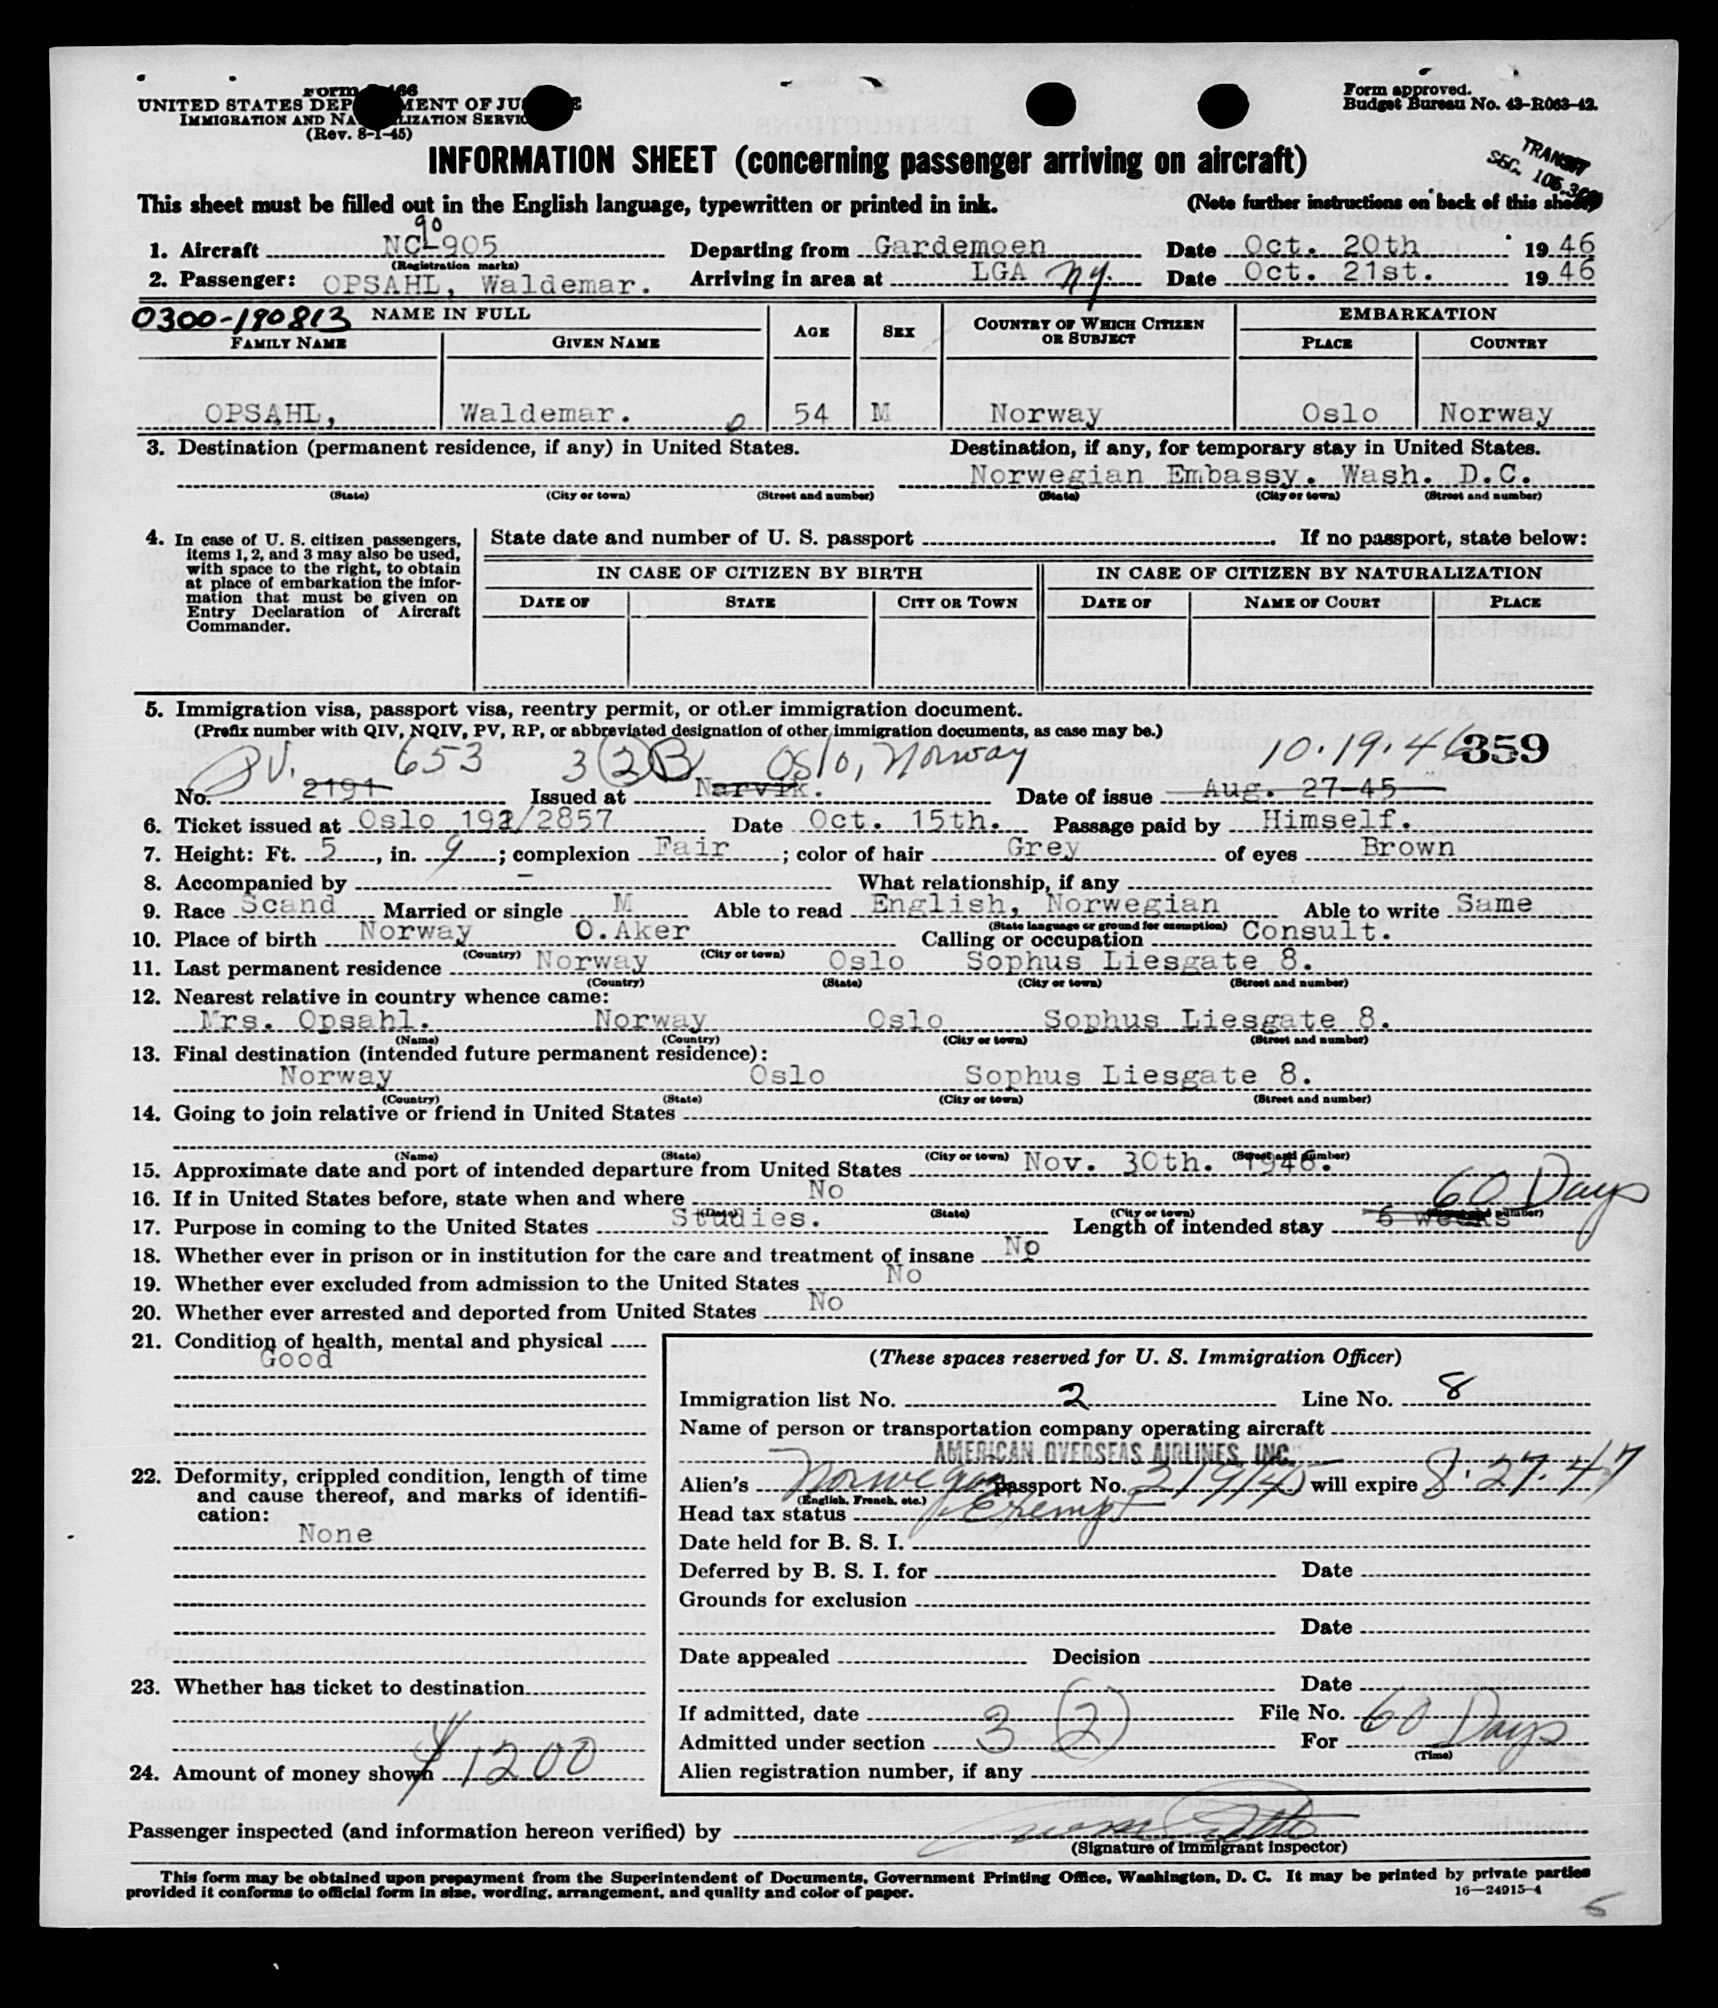 UNITED STATES DEP MENT OF JU
IMMIGRATION AND NA LIZATION SERVIC
(Rev. 8-1-45)
Form approved.
Budget Bureau No. 43-R063-42.
INFORMATION SHEET (concerning passenger arriving on aircraft)
TRANSIT
SEC. 105.3
This sheet must be filled out in the English language, typewritten or printed in ink. (Note further instructions on back of this sheet)
90
1. Aircraft NC-905 Departing from Gardemoen Date Oct. 20th 1946
(Registration marks)
2. Passenger: OPSAHL, Waldemar. Arriving in area at LGA NY. Date Oct. 21st. 1946
0300-190813 NAME IN FULL AGE SEX COUNTRY OF WHICH CITIZEN OR SUBJECT EMBARKATION
FAMILY NAME GIVEN NAME PLACE COUNTRY
OPSAHL, Waldemar. 54 M Norway Oslo Norway
3. Destination (permanent residence, if any) in United States. Destination, if any, for temporary stay in United States.
Norwegian Embassy. Wash. D.C.
(State) (City or town) (Street and number) (State) (City or town) (Street and number)
4. In case of U. S. citizen passengers, items 1, 2, and 3 may also be used, with space to the right, to obtain at place of embarkation the information that must be given on Entry Declaration of Aircraft Commander.
State date and number of U. S. passport . If no passport, state below:
IN CASE OF CITIZEN BY BIRTH IN CASE OF CITIZEN BY NATURALIZATION
DATE OF STATE CITY OR TOWN DATE OF NAME OF COURT PLACE
5. Immigration visa, passport visa, reentry permit, or other immigration document.
(Prefix number with QIV, NQIV, PV, RP, or abbreviated designation of other immigration documents, as case may be.)
PV. 653 3(2)B Oslo, Norway 10.19.46 359
No. 2191 Issued at Narvik. Date of issue Aug. 27-45
6. Ticket issued at Oslo 192/2857 Date Oct. 15th. Passage paid by Himself.
7. Height: Ft. 5, in. 9; complexion Fair; color of hair Grey of eyes Brown
8. Accompanied by - What relationship, if any
9. Race Scand Married or single M Able to read English, Norwegian Able to write Same
(State language or ground for exemption)
10. Place of birth Norway O.Aker Calling or occupation Consult.
(Country) (City or town)
11. Last permanent residence Norway Oslo Sophus Liesgate 8.
(Country) (State) (City or town) (Street and number)
12. Nearest relative in country whence came:
Mrs. Opsahl. Norway Oslo Sophus Liesgate 8.
(Name) (Country) (City or town) (Street and number)
13. Final destination (intended future permanent residence):
Norway Oslo Sophus Liesgate 8.
(Country) (State) (City or town) (Street and number)
14. Going to join relative or friend in United States
(Name) (State) (City or town) (Street and number)
15. Approximate date and port of intended departure from United States Nov. 30th. 1946.
16. If in United States before, state when and where No
(Date) (State) (City or town) (Street and number)
60 Days
17. Purpose in coming to the United States Studies. Length of intended stay 6 weeks
18. Whether ever in prison or in institution for the care and treatment of insane No
19. Whether ever excluded from admission to the United States No
20. Whether ever arrested and deported from United States No
21. Condition of health, mental and physical
Good
22. Deformity, crippled condition, length of time and cause thereof, and marks of identification:
None
23. Whether has ticket to destination
24. Amount of money shown $1200
(These spaces reserved for U. S. Immigration Officer)
Immigration list No. 2 Line No. 8
Name of person or transportation company operating aircraft
AMERICAN OVERSEAS AIRLINES, INC.
Alien's Norwegian passport No. 2191/45 will expire 8.27.47
(English, French, etc.)
Head tax status Exempt
Date held for B. S. I.
Deferred by B. S. I. for Date
Grounds for exclusion
Date
Date appealed Decision
Date
If admitted, date File No.
Admitted under section 3 (2) For 60 Days
(Time)
Alien registration number, if any
Passenger inspected (and information hereon verified) by
(Signature of immigrant inspector)
This form may be obtained upon prepayment from the Superintendent of Documents, Government Printing Office, Washington, D. C. It may be printed by private parties
provided it conforms to official form in size, wording, arrangement, and quality and color of paper.
16—24915-4